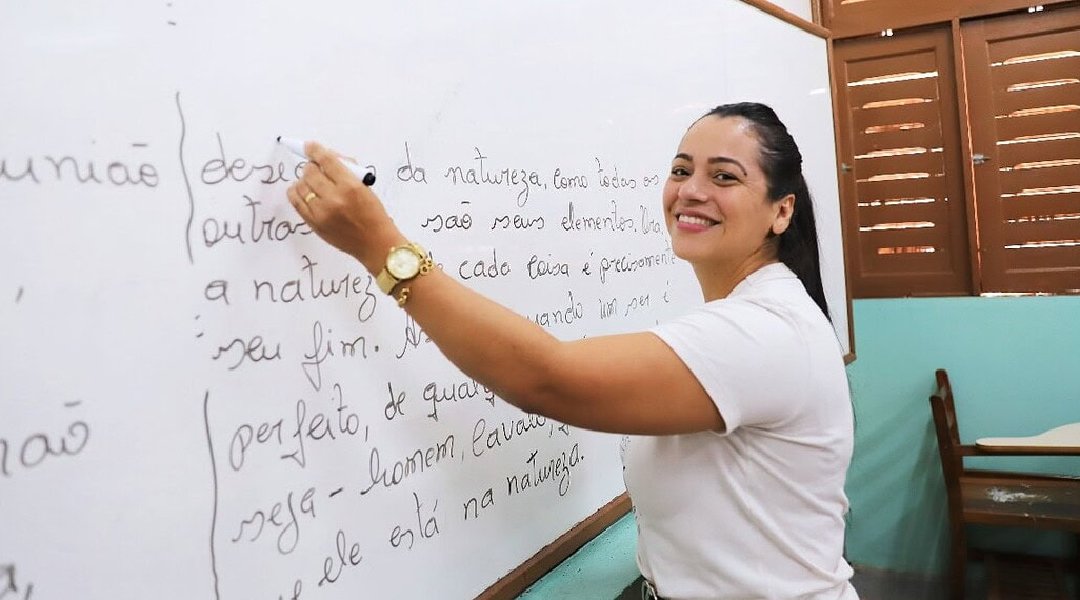 união
desig da natureza, como todas as
outras são seus elementos. Ora
a naturez cada coisa é precisamente
seu fim. As quando um ser é
não
perfeito, de qualq
seja - homem, cavalo,
ele está na natureza.